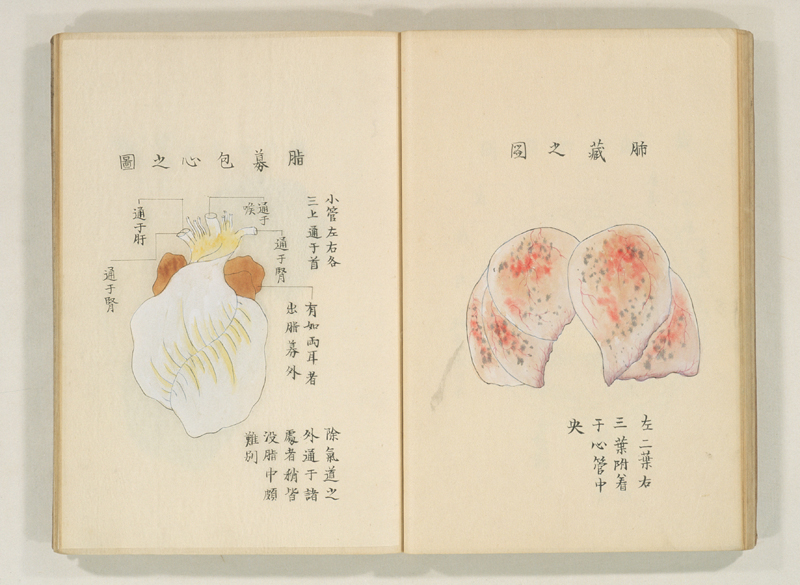 肺藏之圖
左二葉右
三葉附着
于心管中
央
脂募包心之圖
小管左右各
三上通于首
通于
喉
通于腎
通于肝
通于腎
有如兩耳者
出脂募外
除氣道之
外通于諸
處者稍皆
没脂中頗
難別